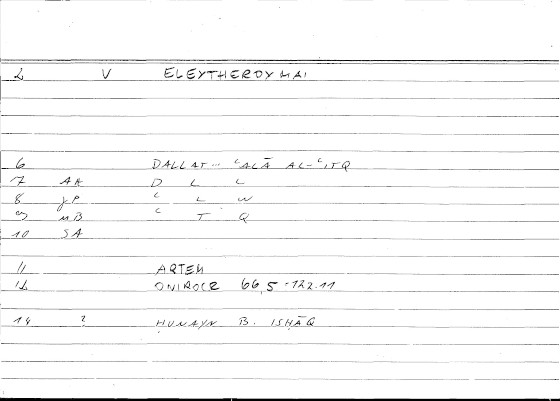 2 V ELEYTHEROYMAI
6 DALLAT... ʿALĀ AL-ʿITQ
7 AA D L L
8 JP ʿ L W
9 MB ʿ T Q
10 SA
11 ARTEM
12 ONIROCR 66,5-122.11
14 ? ḤUNAYN B. ISḤĀQ